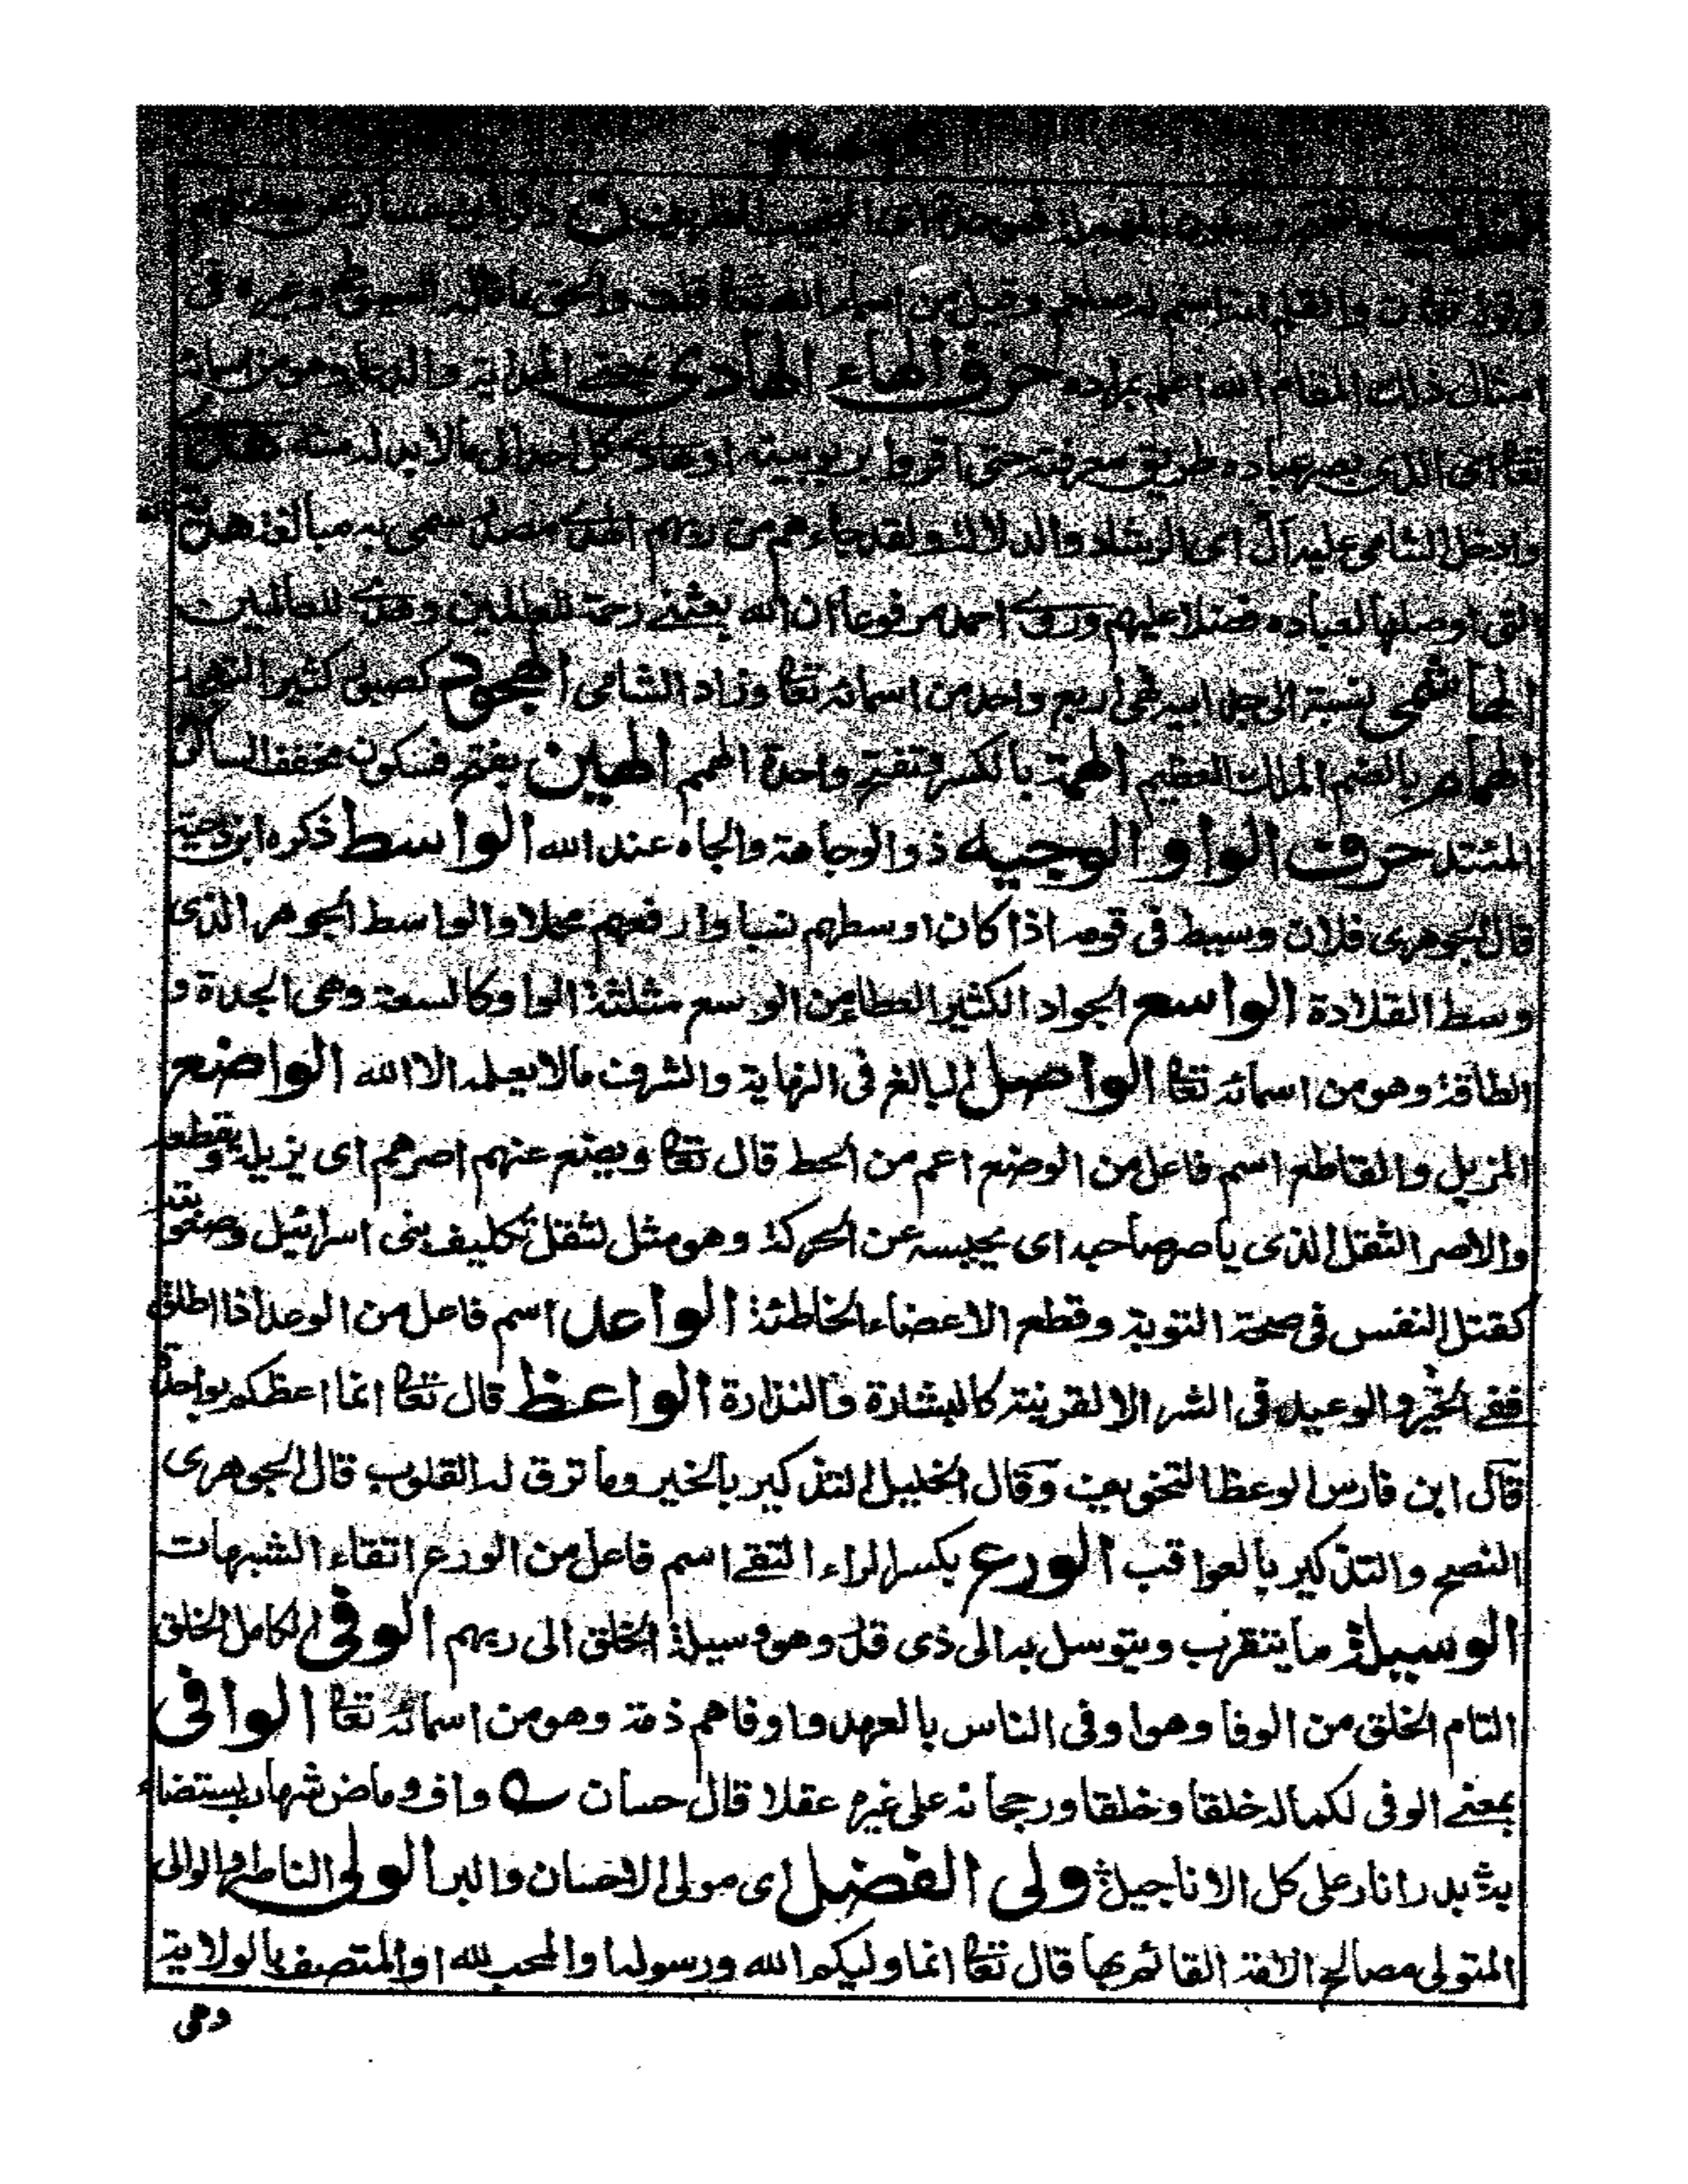 في قوله تعالى ن والقلم انه اسم له صلعم وقيل من اسماء الله تعالى قلت والحق ما قاله السيوطي وغيره في
امثال ذلك المقام الله اعلم بمراده حرف الهاء الهادى بمعنى الهداية والدعاء وهو من اسمائه
تعا اى الذى بصر عباده طريق معرفته حتى اقروا بربوبيته او هاد كل احد الى مالا بد له منه هدى
وادخل الشامى عليه ال اى الرشاد والدلالة ولقد جاءهم من ربهم الهدى مصدر سمى به مبالغة هدية الله
التى اوصلها لعباده فضلا عليهم وروى احمد مرفوعا ان الله بعثنى رحمة للعالمين وهدى للعالمين
الهاشمى نسبة الى جد ابيه فهى اربع واحد من اسمائه تعا وزاد الشامى الهجود كصبور كثير التهجد
الهمام بالضم الملك العظيم الهمة بالكسر وتفتح واحدة الهمم الهين بفتح فسكون مخفف الساكن
المئتد حرف الواو الوجيه ذو الوجاهة والجاه عند الله الواسط ذكره ابن دحية
قال الجوهرى فلان وسيط فى قومه اذا كان اوسطهم نسبا وارفعهم محلا والواسط الجوهر الذى
وسط القلادة الواسع الجواد الكثير العطاء من الوسع مثلثة الواو كالسعة وهى الجدة و
الطاقة وهو من اسمائه تعا الواصل البالغ فى النهاية والشرف مالا يعلمه الا الله الواضع
المزيل والقاطع اسم فاعل من الوضع اعم من الحط قال تعا ويضع عنهم اصرهم اى يزيله ويقطعه
والاصر الثقل الذى ياصر صاحبه اى يحبسه عن الحركة وهو مثل لثقل تكليف بنى اسرائيل وصعوبته
كقتل النفس فى صحة التوبة وقطع الاعضاء الخاطئة الواعد اسم فاعل من الوعد اذا اطلق
ففى الخير والوعيد فى الشر الا لقرينة كالبشارة والنذارة الواعظ قال تعا انما اعظكم بواحدة
قال ابن فارس الوعظ التخويف وقال الخليل التذكير بالخير وما ترق له القلوب قال الجوهرى
النصح والتذكير بالعواقب الورع بكسر الراء التقى اسم فاعل من الورع اتقاء الشبهات
الوسيلة ما يتقرب ويتوسل به الى ذى قدر وهو وسيلة الخلق الى ربهم الوفى الكامل الخلق
التام الخلق من الوفا وهو اوفى الناس بالعهد واوفاهم ذمة وهو من اسمائه تعا الوافى
بمعنى الوفى لكماله خلقا وخلقا ورجحانه على غيره عقلا قال حسان واف وماض شهاب يستضاء
به بدر انار على كل الاناجيل ولى الفضل اى مولى الاحسان والبر الولى الناصر والوالى
المتولى مصالح الامة القائم بها قال تعا انما وليكم الله ورسوله والمحب لله او المتصف بالولاية
وهى